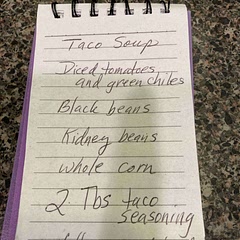 Taco Soup
Diced tomatoes
and green chiles
Black beans
Kidney beans
whole corn
2 Tbs taco
seasoning